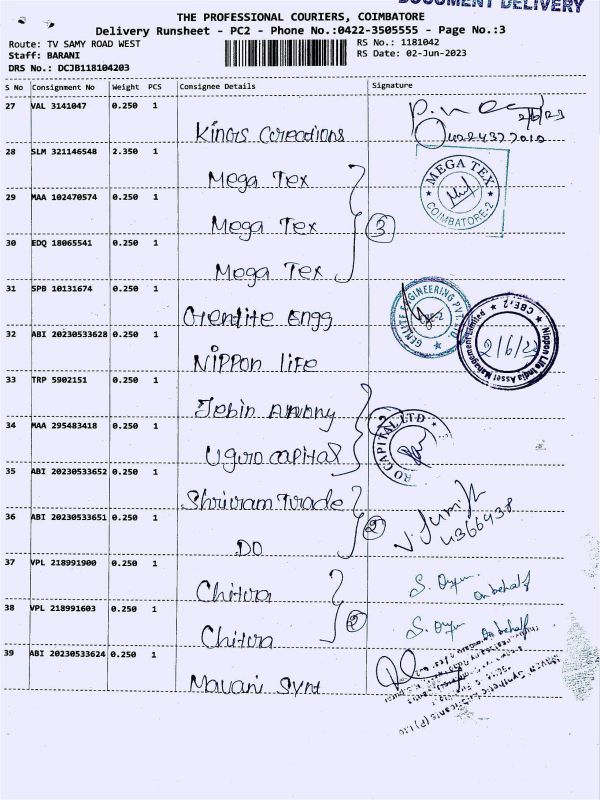 DOCUMENT DELIVERY
THE PROFESSIONAL COURIERS, COIMBATORE
Delivery Runsheet - PC2 - Phone No.:0422-3505555 - Page No.:3
Route: TV SAMY ROAD WEST
RS No.: 1181042
Staff: BARANI
RS Date: 02-Jun-2023
DRS No.: DCJB118104203
S No Consignment No Weight PCS Consignee Details Signature
27 VAL 3141047 0.250 1
2/6/23
Kings Coreations
28 SLM 321146548 2.350 1
Mega Tex
MEGA TEX
COIMBATORE-2
29 MAA 102470574 0.250 1
Mega Tex
3
30 EDQ 18065541 0.250 1
Mega Tex
31 SPB 10131674 0.250 1
Genlite Engg
GENLITE ENGINEERING PVT LTD
32 ABI 20230533628 0.250 1
Nippon life
Nippon Life India Asset Management Limited
CBE-2
2/6/23
33 TRP 5902151 0.250 1
Jebin Antony
34 MAA 295483418 0.250 1
Ugro capital
RO CAPITAL LTD
35 ABI 20230533652 0.250 1
Shriram Trade
36 ABI 20230533651 0.250 1
2
DO
37 VPL 218991900 0.250 1
Chitra
on behalf
38 VPL 218991603 0.250 1
2
Chitra
on behalf
39 ABI 20230533624 0.250 1
Mavani Synt